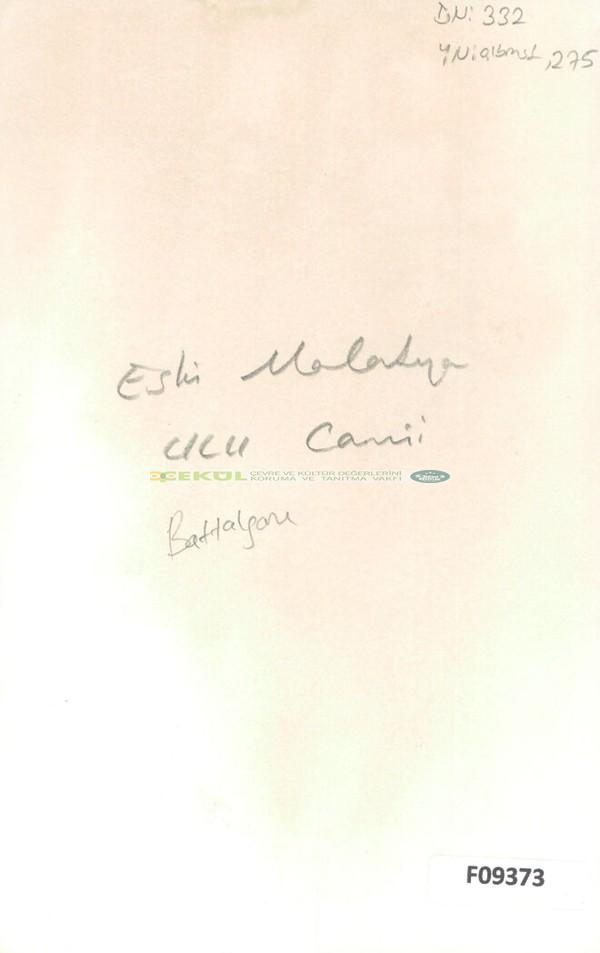 DN: 332
YN: albüm1, 275
Eski Malatya
Ulu Camii
ÇEKÜL ÇEVRE VE KÜLTÜR DEĞERLERİNİ
KORUMA VE TANITMA VAKFI
Battalgazi
F09373